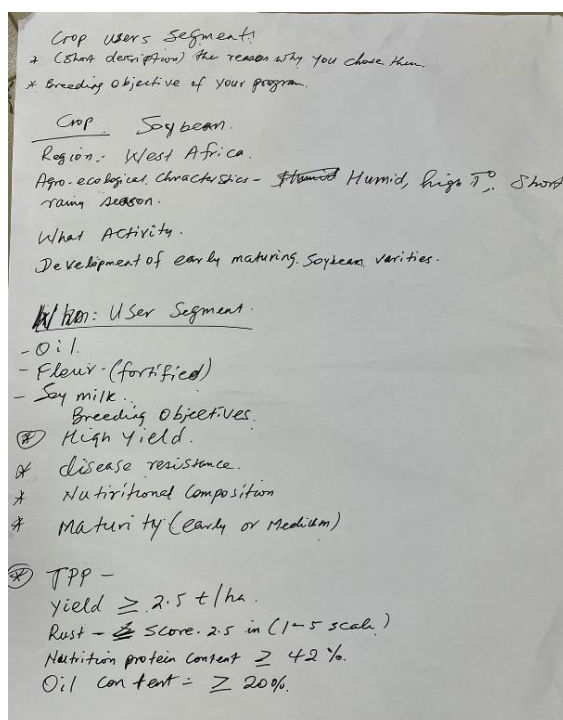 Crop users Segment!
* (Short description) the reason why you chose them.
* Breeding Objective of your program.
Crop Soybean.
Region: West Africa.
Agro-ecological Characteristics - Humid Humid, high T°. Short
rainy season.
What Activity.
Development of early maturing Soybean varities.
User Segment.
- Oil.
- Flour (fortified)
- Soy milk.
Breeding Objectives.
* High Yield.
* disease resistance.
* Nutiritional Composition
* Maturity (early or Medium)
* TPP -
Yield ≥ 2.5 t/ha.
Rust - Score 2.5 in (1-5 scale)
Nutrition protein content ≥ 42%.
Oil content = ≥ 20%.